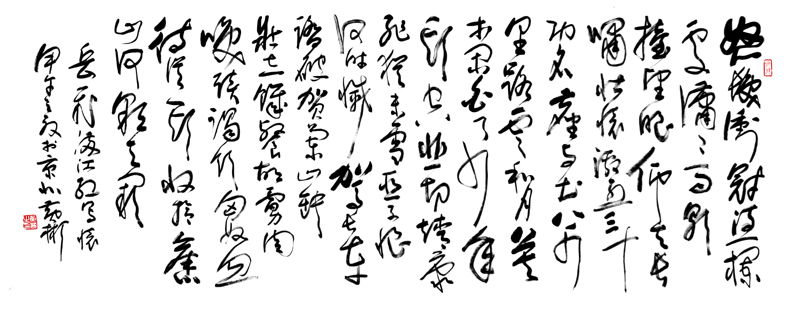 怒髮衝冠憑欄
處瀟瀟雨歇
擡望眼仰天長
嘯壯懷激烈三十
功名塵與土八千
里路雲和月莫
等閑白了少年
頭空悲切靖康
恥猶未雪臣子恨
何時滅駕長車
踏破賀蘭山缺
壯志飢餐胡虜肉
笑談渴飲匈奴血
待從頭收拾舊
山河朝天闕
岳飛滿江紅寫懷
甲午之於京北